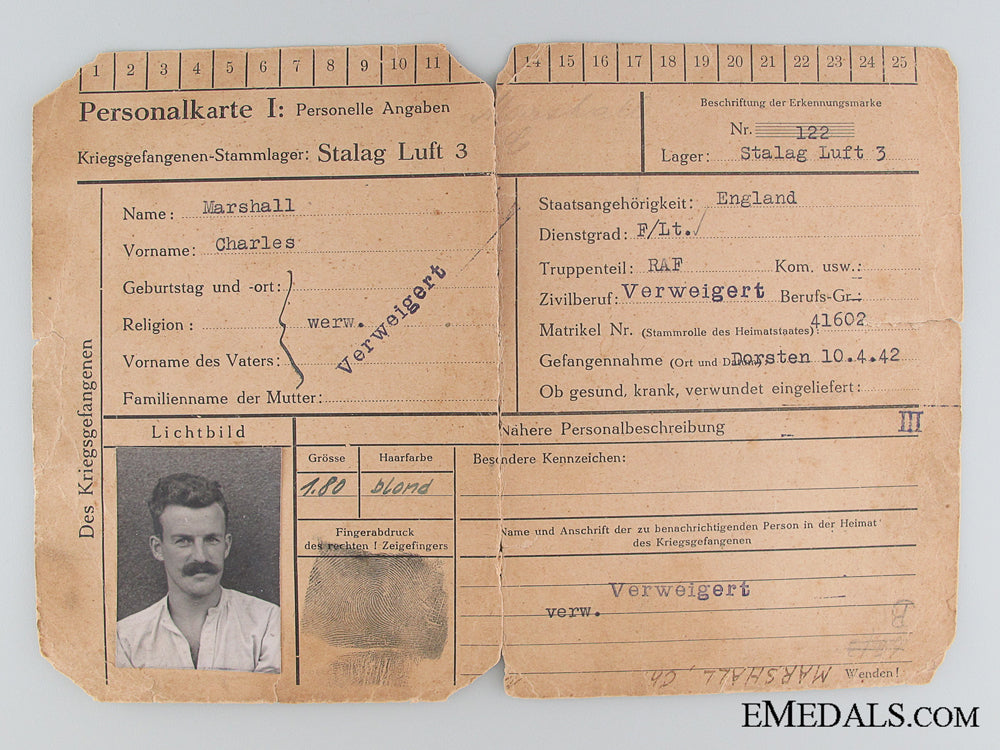 1 2 3 4 5 6 7 8 9 10 11 14 15 16 17 18 19 20 21 22 23 24 25
Personalkarte I: Personelle Angaben
Kriegsgefangenen-Stammlager: Stalag Luft 3
Beschriftung der Erkennungsmarke
Nr. 122
Lager: Stalag Luft 3
Des Kriegsgefangenen
Name: Marshall
Vorname: Charles
Geburtstag und -ort:
Religion: werw.
Verweigert
Vorname des Vaters:
Familienname der Mutter:
Staatsangehörigkeit: England
Dienstgrad: F/Lt.
Truppenteil: RAF Kom. usw.:
Zivilberuf: Verweigert Berufs-Gr.:
Matrikel Nr. (Stammrolle des Heimatstaates) 41602
Gefangennahme (Ort und Datum): Dorsten 10.4.42
Ob gesund, krank, verwundet eingeliefert:
Lichtbild
Nähere Personalbeschreibung III
Grösse Haarfarbe
1.80 blond
Besondere Kennzeichen:
Fingerabdruck
des rechten ! Zeigefingers
Name und Anschrift der zu benachrichtigenden Person in der Heimat
des Kriegsgefangenen
Verweigert
verw.
B
MARSHALL, Ch
Wenden!
EMEDALS.COM